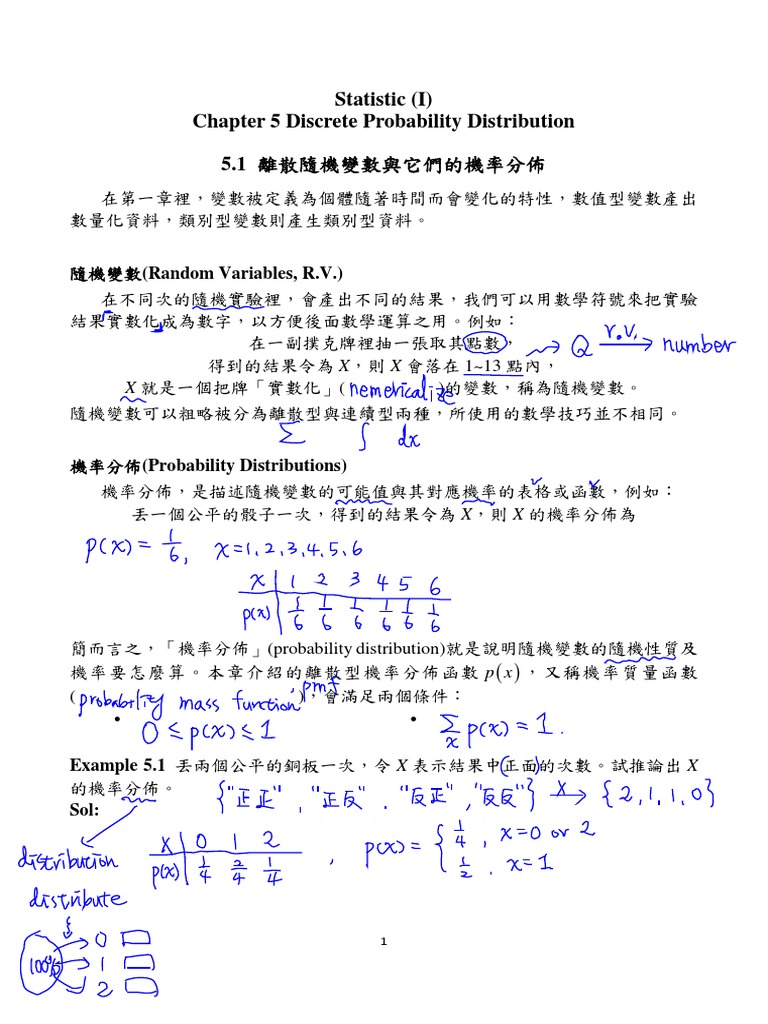 Statistic (I)
Chapter 5 Discrete Probability Distribution
5.1 離散隨機變數與它們的機率分佈
在第一章裡，變數被定義為個體隨著時間而會變化的特性，數值型變數產出
數量化資料，類別型變數則產生類別型資料。
隨機變數(Random Variables, R.V.)
在不同次的隨機實驗裡，會產出不同的結果，我們可以用數學符號來把實驗
結果實數化成為數字，以方便後面數學運算之用。例如：
在一副撲克牌裡抽一張取其點數， Q r.v. → number
得到的結果令為 X，則 X 會落在 1~13 點內，
X 就是一個把牌「實數化」( nemericalize )的變數，稱為隨機變數。
隨機變數可以粗略被分為離散型與連續型兩種，所使用的數學技巧並不相同。
Σ ∫ dx
機率分佈(Probability Distributions)
機率分佈，是描述隨機變數的可能值與其對應機率的表格或函數，例如：
丟一個公平的骰子一次，得到的結果令為 X，則 X 的機率分佈為
p(x) = 1/6, x=1,2,3,4,5,6
x 1 2 3 4 5 6
p(x) 1/6 1/6 1/6 1/6 1/6 1/6
簡而言之，「機率分佈」(probability distribution)就是說明隨機變數的隨機性質及
機率要怎麼算。本章介紹的離散型機率分佈函數 p(x)，又稱機率質量函數
( probability mass function, pmf )，會滿足兩個條件：
• 0 ≤ p(x) ≤ 1 • Σx p(x) = 1.
Example 5.1 丟兩個公平的銅板一次，令 X 表示結果中(正面)的次數。試推論出 X
的機率分佈。 {"正正", "正反", "反正", "反反"} X → {2,1,1,0}
Sol:
X 0 1 2
p(x) 1/4 2/4 1/4 , p(x) = { 1/4, x=0 or 2
1/2, x=1
distribution
distribute
100% 0
1
2
1